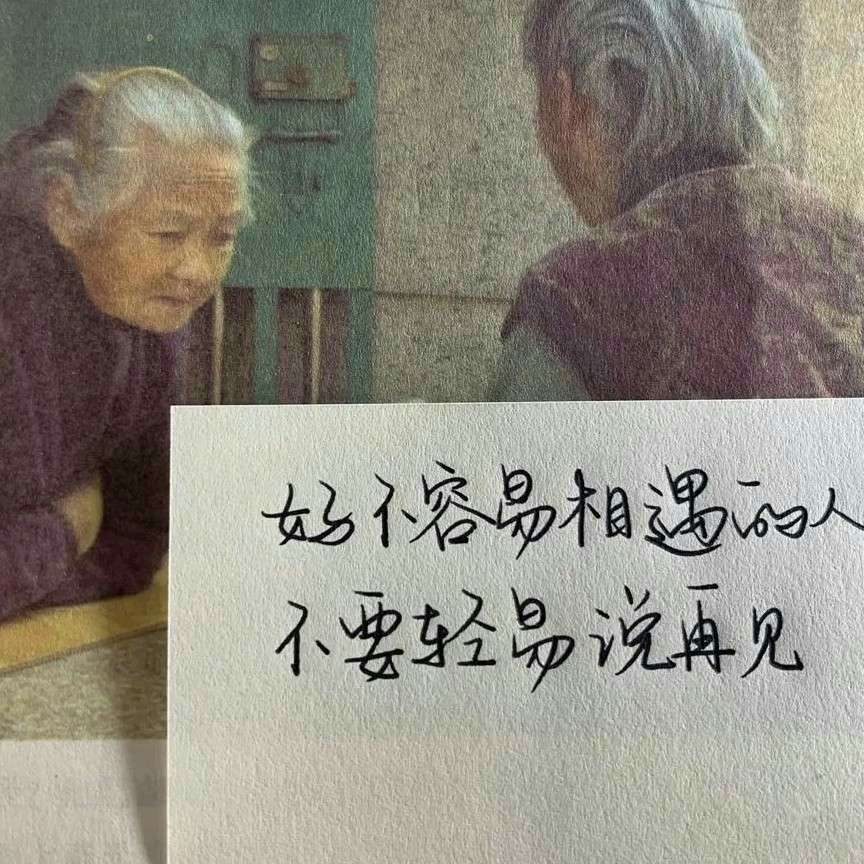 好不容易相遇的人
不要轻易说再见